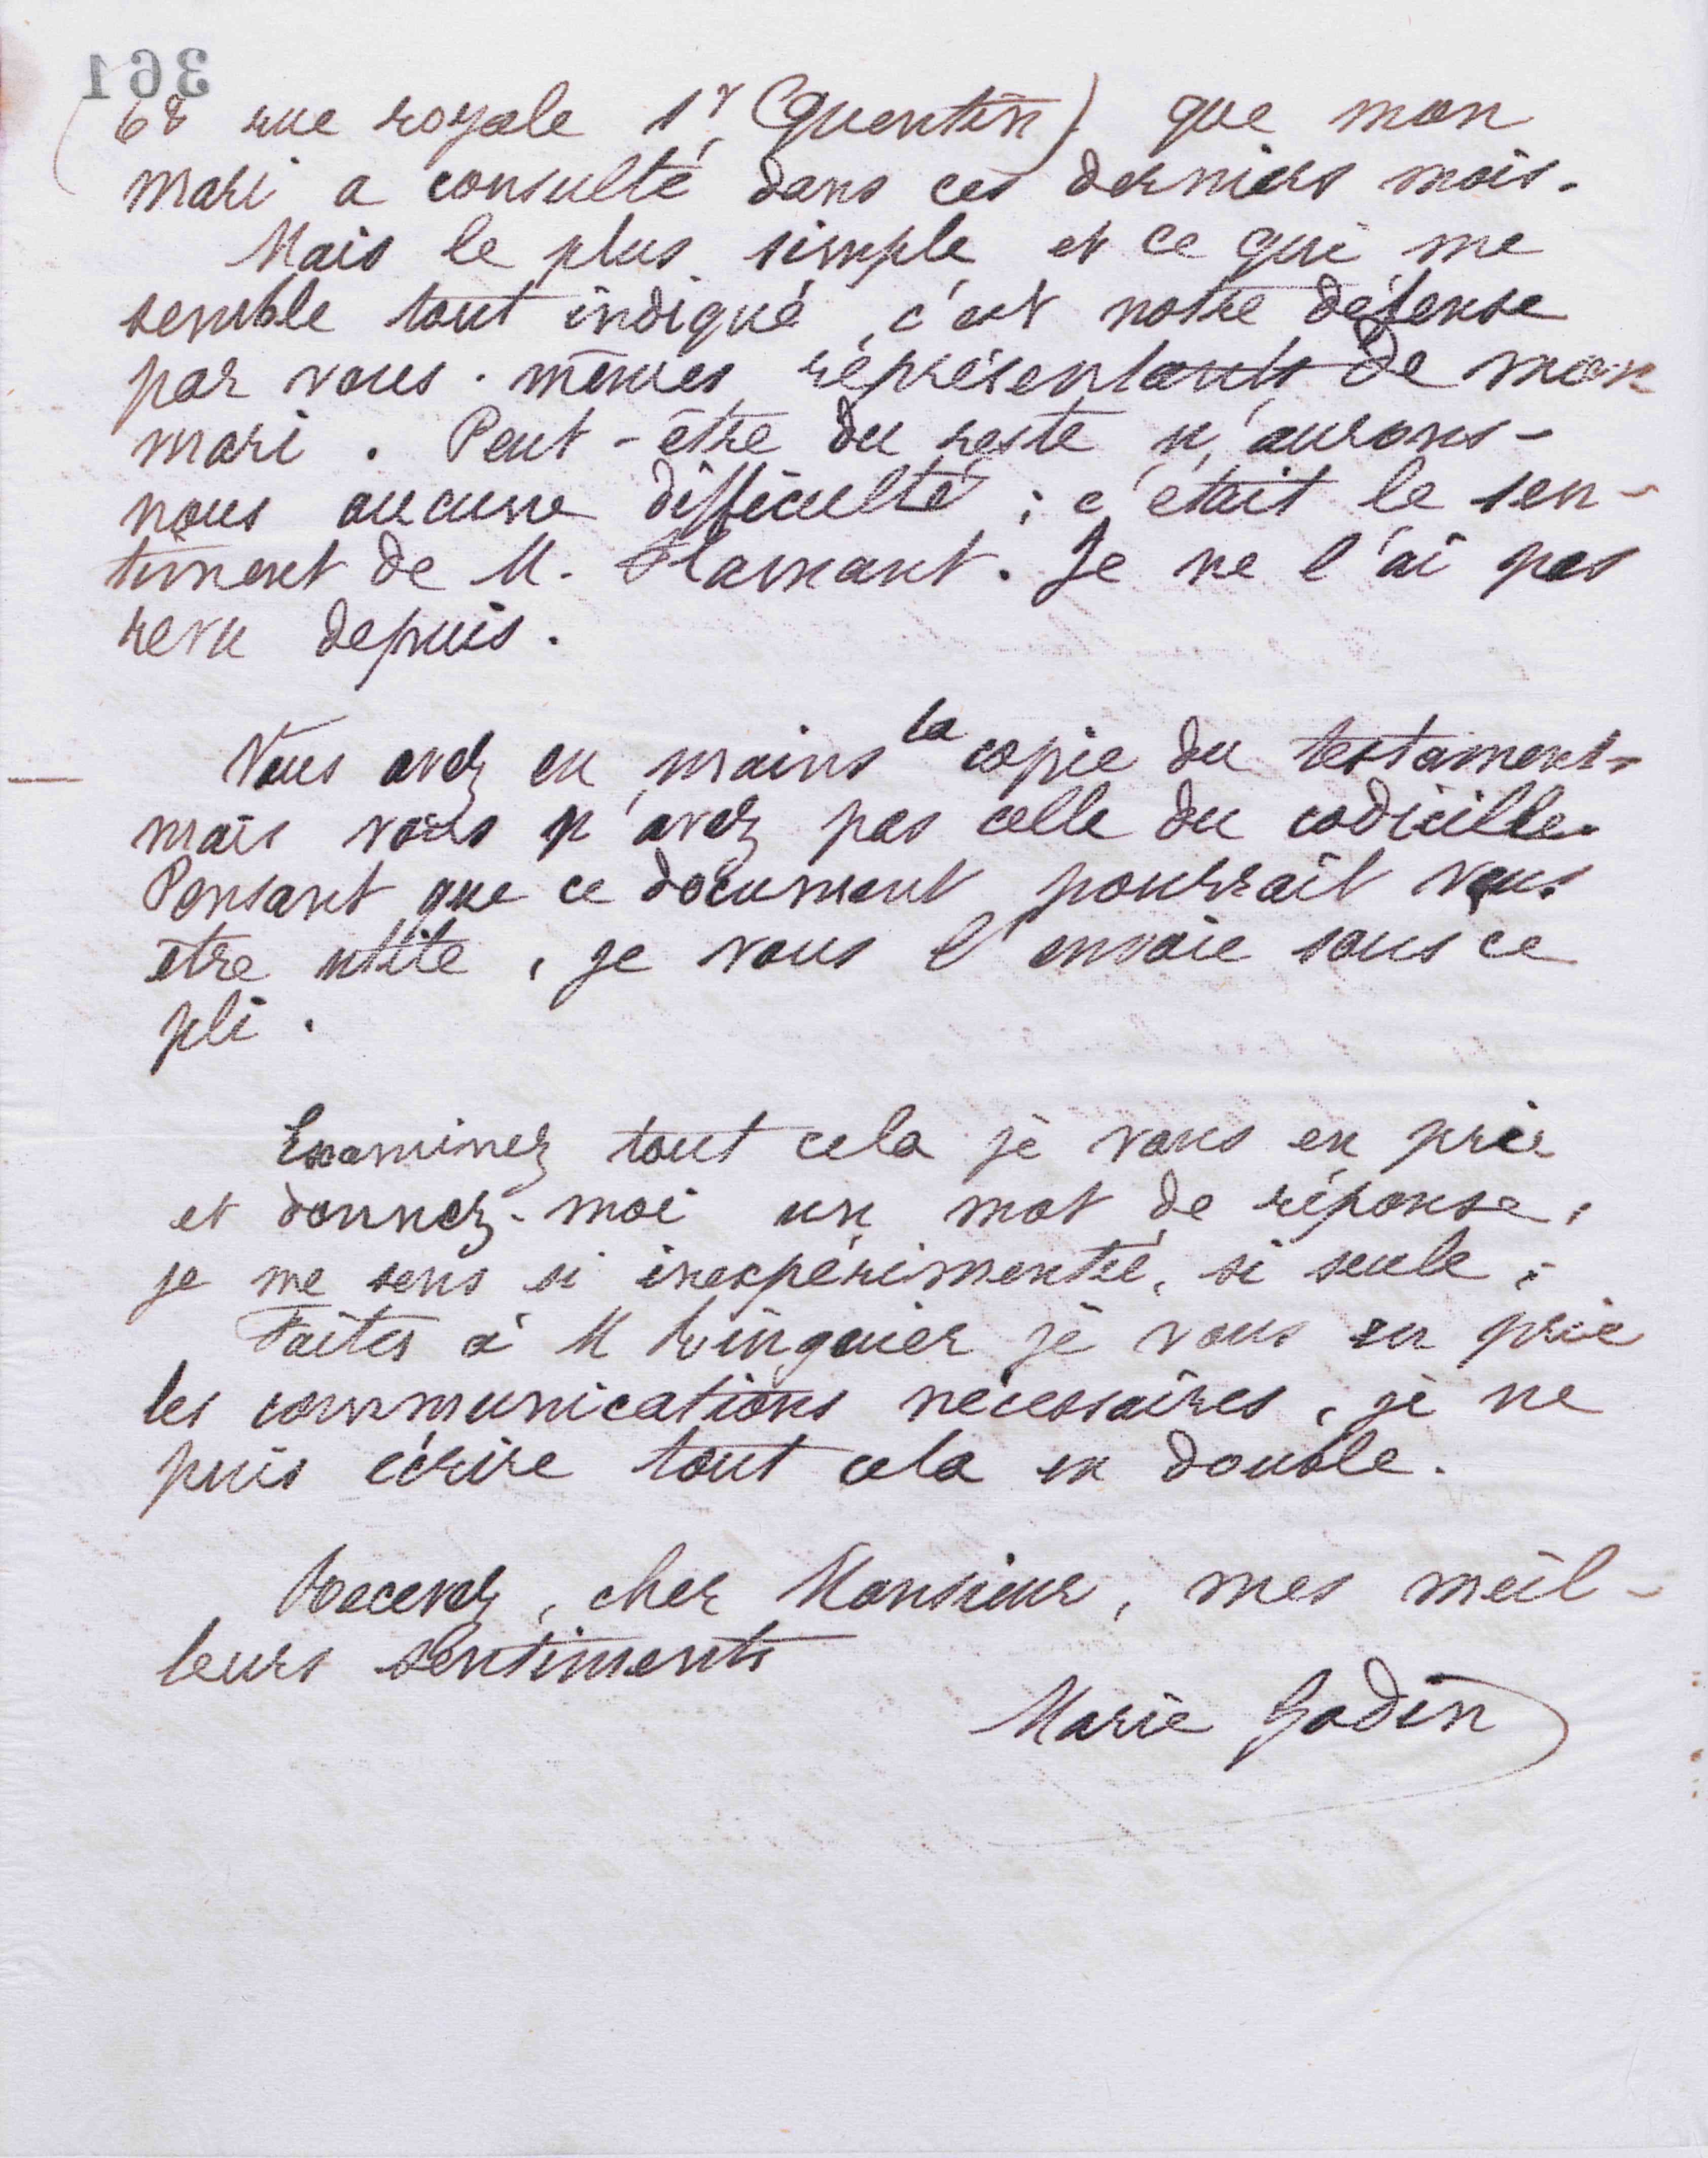 361
(68 rue royale St Quentin) que mon
mari a consulté dans ces derniers mois.
Mais le plus simple et ce qui me
semble tout indiqué, c'est notre défense
par vous-mêmes représentants de mon
mari. Peut-être du reste n'aurons-
nous aucune difficulté ; c'était le sen-
timent de M. Flamant. Je ne l'ai pas
revu depuis.
Vous avez en mains la copie du testament,
mais vous n'avez pas celle du codicille.
Pensant que ce document pourrait vous
être utile, je vous l'envoie sous ce
pli.
Examinez tout cela je vous en prie
et donnez-moi un mot de réponse,
je me sens si inexpérimentée, si seule ;
Faites à M Ringuier je vous en prie
les communications nécessaires, je ne
puis écrire tout cela en double.
Recevez, cher Monsieur, mes meil-
leurs sentiments
Marie Godin